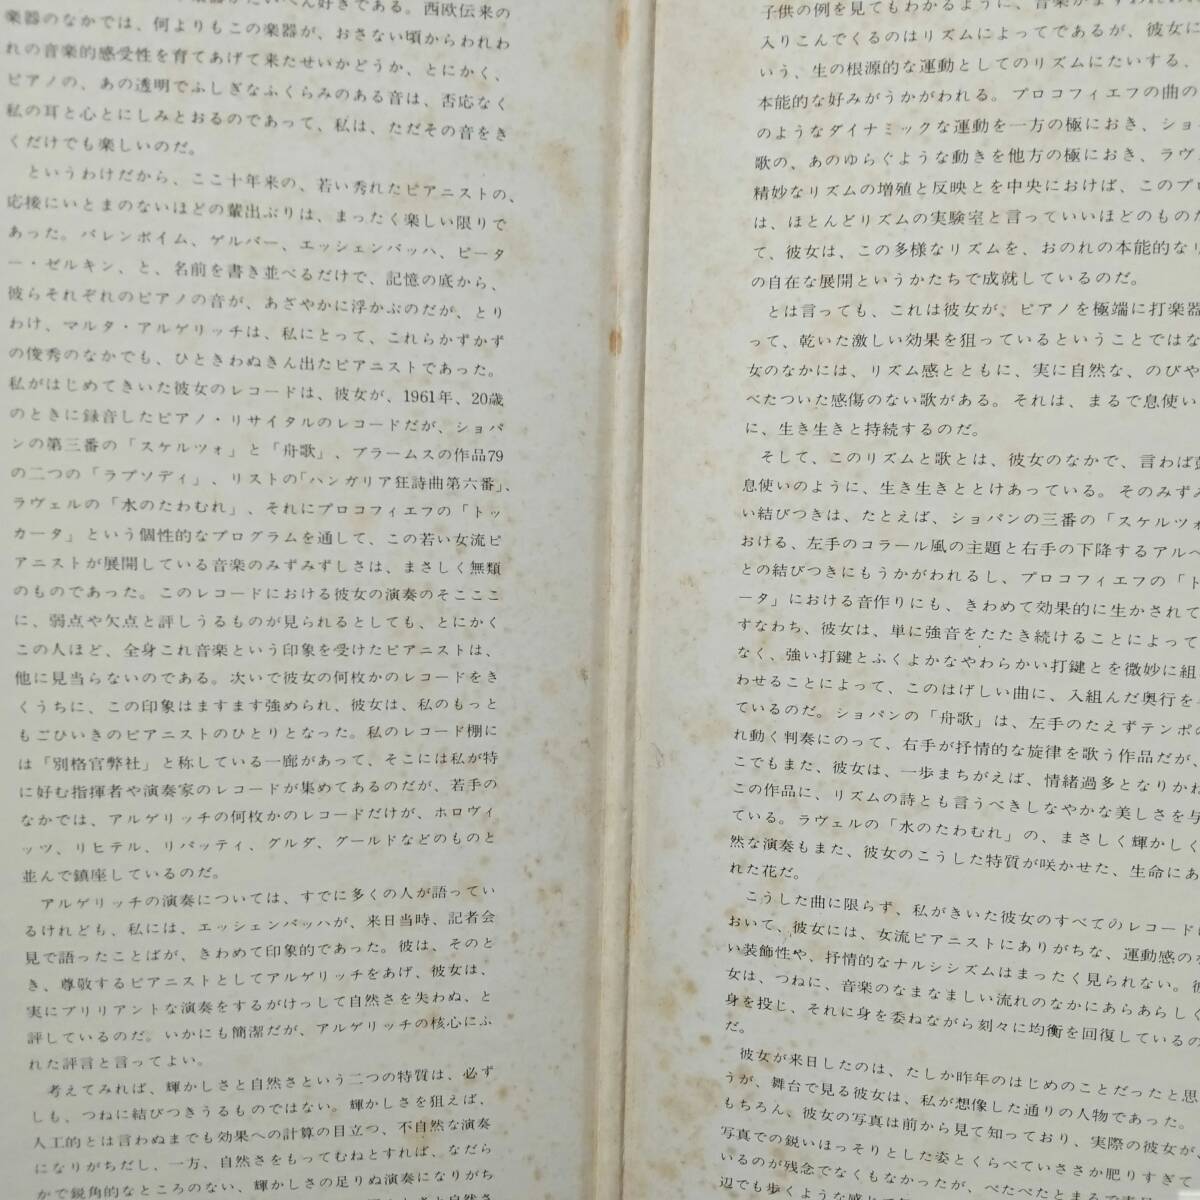 楽器のなかでは、何よりもこの楽器が、おさない頃からわれわ
れの音楽的感受性を育てあげて来たせいかどうか、とにかく、
ピアノの、あの透明でふしぎなふくらみのある音は、否応なく
私の耳と心とにしみとおるのであって、私は、ただその音をき
くだけでも楽しいのだ。
というわけだから、ここ十年来の、若い秀れたピアニストの、
応接にいとまのないほどの輩出ぶりは、まったく楽しい限りで
あった。バレンボイム、ゲルバー、エッシェンバッハ、ピータ
ー・ゼルキン、と、名前を書き並べるだけで、記憶の底から、
彼らそれぞれのピアノの音が、あざやかに浮かぶのだが、とり
わけ、マルタ・アルゲリッチは、私にとって、これらかずかず
の俊秀のなかでも、ひときわぬきん出たピアニストであった。
私がはじめてきいた彼女のレコードは、彼女が、1961年、20歳
のときに録音したピアノ・リサイタルのレコードだが、ショパ
ンの第三番の「スケルツォ」と「舟歌」、ブラームスの作品79
の二つの「ラプソディ」、リストの「ハンガリア狂詩曲第六番」、
ラヴェルの「水のたわむれ」、それにプロコフィエフの「トッ
カータ」という個性的なプログラムを通して、この若い女流ピ
アニストが展開している音楽のみずみずしさは、まさしく無類
のものであった。このレコードにおける彼女の演奏のそこここ
に、弱点や欠点と評しうるものが見られるとしても、とにかく
この人ほど、全身これ音楽という印象を受けたピアニストは、
他に見当らないのである。次いで彼女の何枚かのレコードをき
くうちに、この印象はますます強められ、彼女は、私のもっと
もごひいきのピアニストのひとりとなった。私のレコード棚に
は「別格官弊社」と称している一廊があって、そこには私が特
に好む指揮者や演奏家のレコードが集めてあるのだが、若手の
なかでは、アルゲリッチの何枚かのレコードだけが、ホロヴィ
ッツ、リヒテル、リパッティ、グルダ、グールドなどのものと
並んで鎮座しているのだ。
アルゲリッチの演奏については、すでに多くの人が語ってい
るけれども、私には、エッシェンバッハが、来日当時、記者会
見で語ったことばが、きわめて印象的であった。彼は、そのと
き、尊敬するピアニストとしてアルゲリッチをあげ、彼女は、
実にブリリアントな演奏をするがけっして自然さを失わぬ、と
評しているのだ。いかにも簡潔だが、アルゲリッチの核心にふ
れた評言と言ってよい。
考えてみれば、輝かしさと自然さという二つの特質は、必ず
しも、つねに結びつきうるものではない。輝かしさを狙えば、
人工的とは言わぬまでも効果への計算の目立つ、不自然な演奏
になりがちだし、一方、自然さをもってむねとすれば、なだら
かで鋭角的なところのない、輝かしさの足りぬ演奏になりがち
子供の例を見てもわかるように、音楽がまず
入りこんでくるのはリズムによってであるが、彼女に
いう、生の根源的な運動としてのリズムにたいする、
本能的な好みがうかがわれる。プロコフィエフの曲の
のようなダイナミックな運動を一方の極におき、ショ
歌の、あのゆらぐような動きを他方の極におき、ラヴ
精妙なリズムの増殖と反映とを中央におけば、このプ
は、ほとんどリズムの実験室と言っていいほどのものだ
て、彼女は、この多様なリズムを、おのれの本能的なリ
の自在な展開というかたちで成就しているのだ。
とは言っても、これは彼女が、ピアノを極端に打楽器
って、乾いた激しい効果を狙っているということではな
女のなかには、リズム感とともに、実に自然な、のびや
べたついた感傷のない歌がある。それは、まるで息使い
に、生き生きと持続するのだ。
そして、このリズムと歌とは、彼女のなかで、言わば
息使いのように、生き生きととけあっている。そのみずみ
い結びつきは、たとえば、ショパンの三番の「スケルツォ
おける、左手のコラール風の主題と右手の下降するアルペ
との結びつきにもうかがわれるし、プロコフィエフの「ト
ータ」における音作りにも、きわめて効果的に生かされて
すなわち、彼女は、単に強音をたたき続けることによって
なく、強い打鍵とふくよかなやわらかい打鍵とを微妙に組
わせることによって、このはげしい曲に、入組んだ奥行を
ているのだ。ショパンの「舟歌」は、左手のたえずテンポの
れ動く判奏にのって、右手が抒情的な旋律を歌う作品だが、
こでもまた、彼女は、一歩まちがえば、情緒過多となりかね
この作品に、リズムの詩とも言うべきしなやかな美しさを与
ている。ラヴェルの「水のたわむれ」の、まさしく輝かしく
然な演奏もまた、彼女のこうした特質が咲かせた、生命にあ
れた花だ。
こうした曲に限らず、私がきいた彼女のすべてのレコードに
おいて、彼女には、女流ピアニストにありがちな、運動感のな
い装飾性や、抒情的なナルシシズムはまったく見られない。彼
女は、つねに、音楽のなまなましい流れのなかにあらあらしく
身を投じ、それに身を委ねながら刻々に均衡を回復しているの
だ。
彼女が来日したのは、たしか昨年のはじめのことだったと思
うが、舞台で見る彼女は、私が想像した通りの人物であった。
もちろん、彼女の写真は前から見て知っており、実際の彼女が、
写真での鋭いほっそりとした姿とくらべていささか肥りすぎて
いるのが残念でなくもなかったが、ぺたぺたとまるで
辺でも歩くような感じで